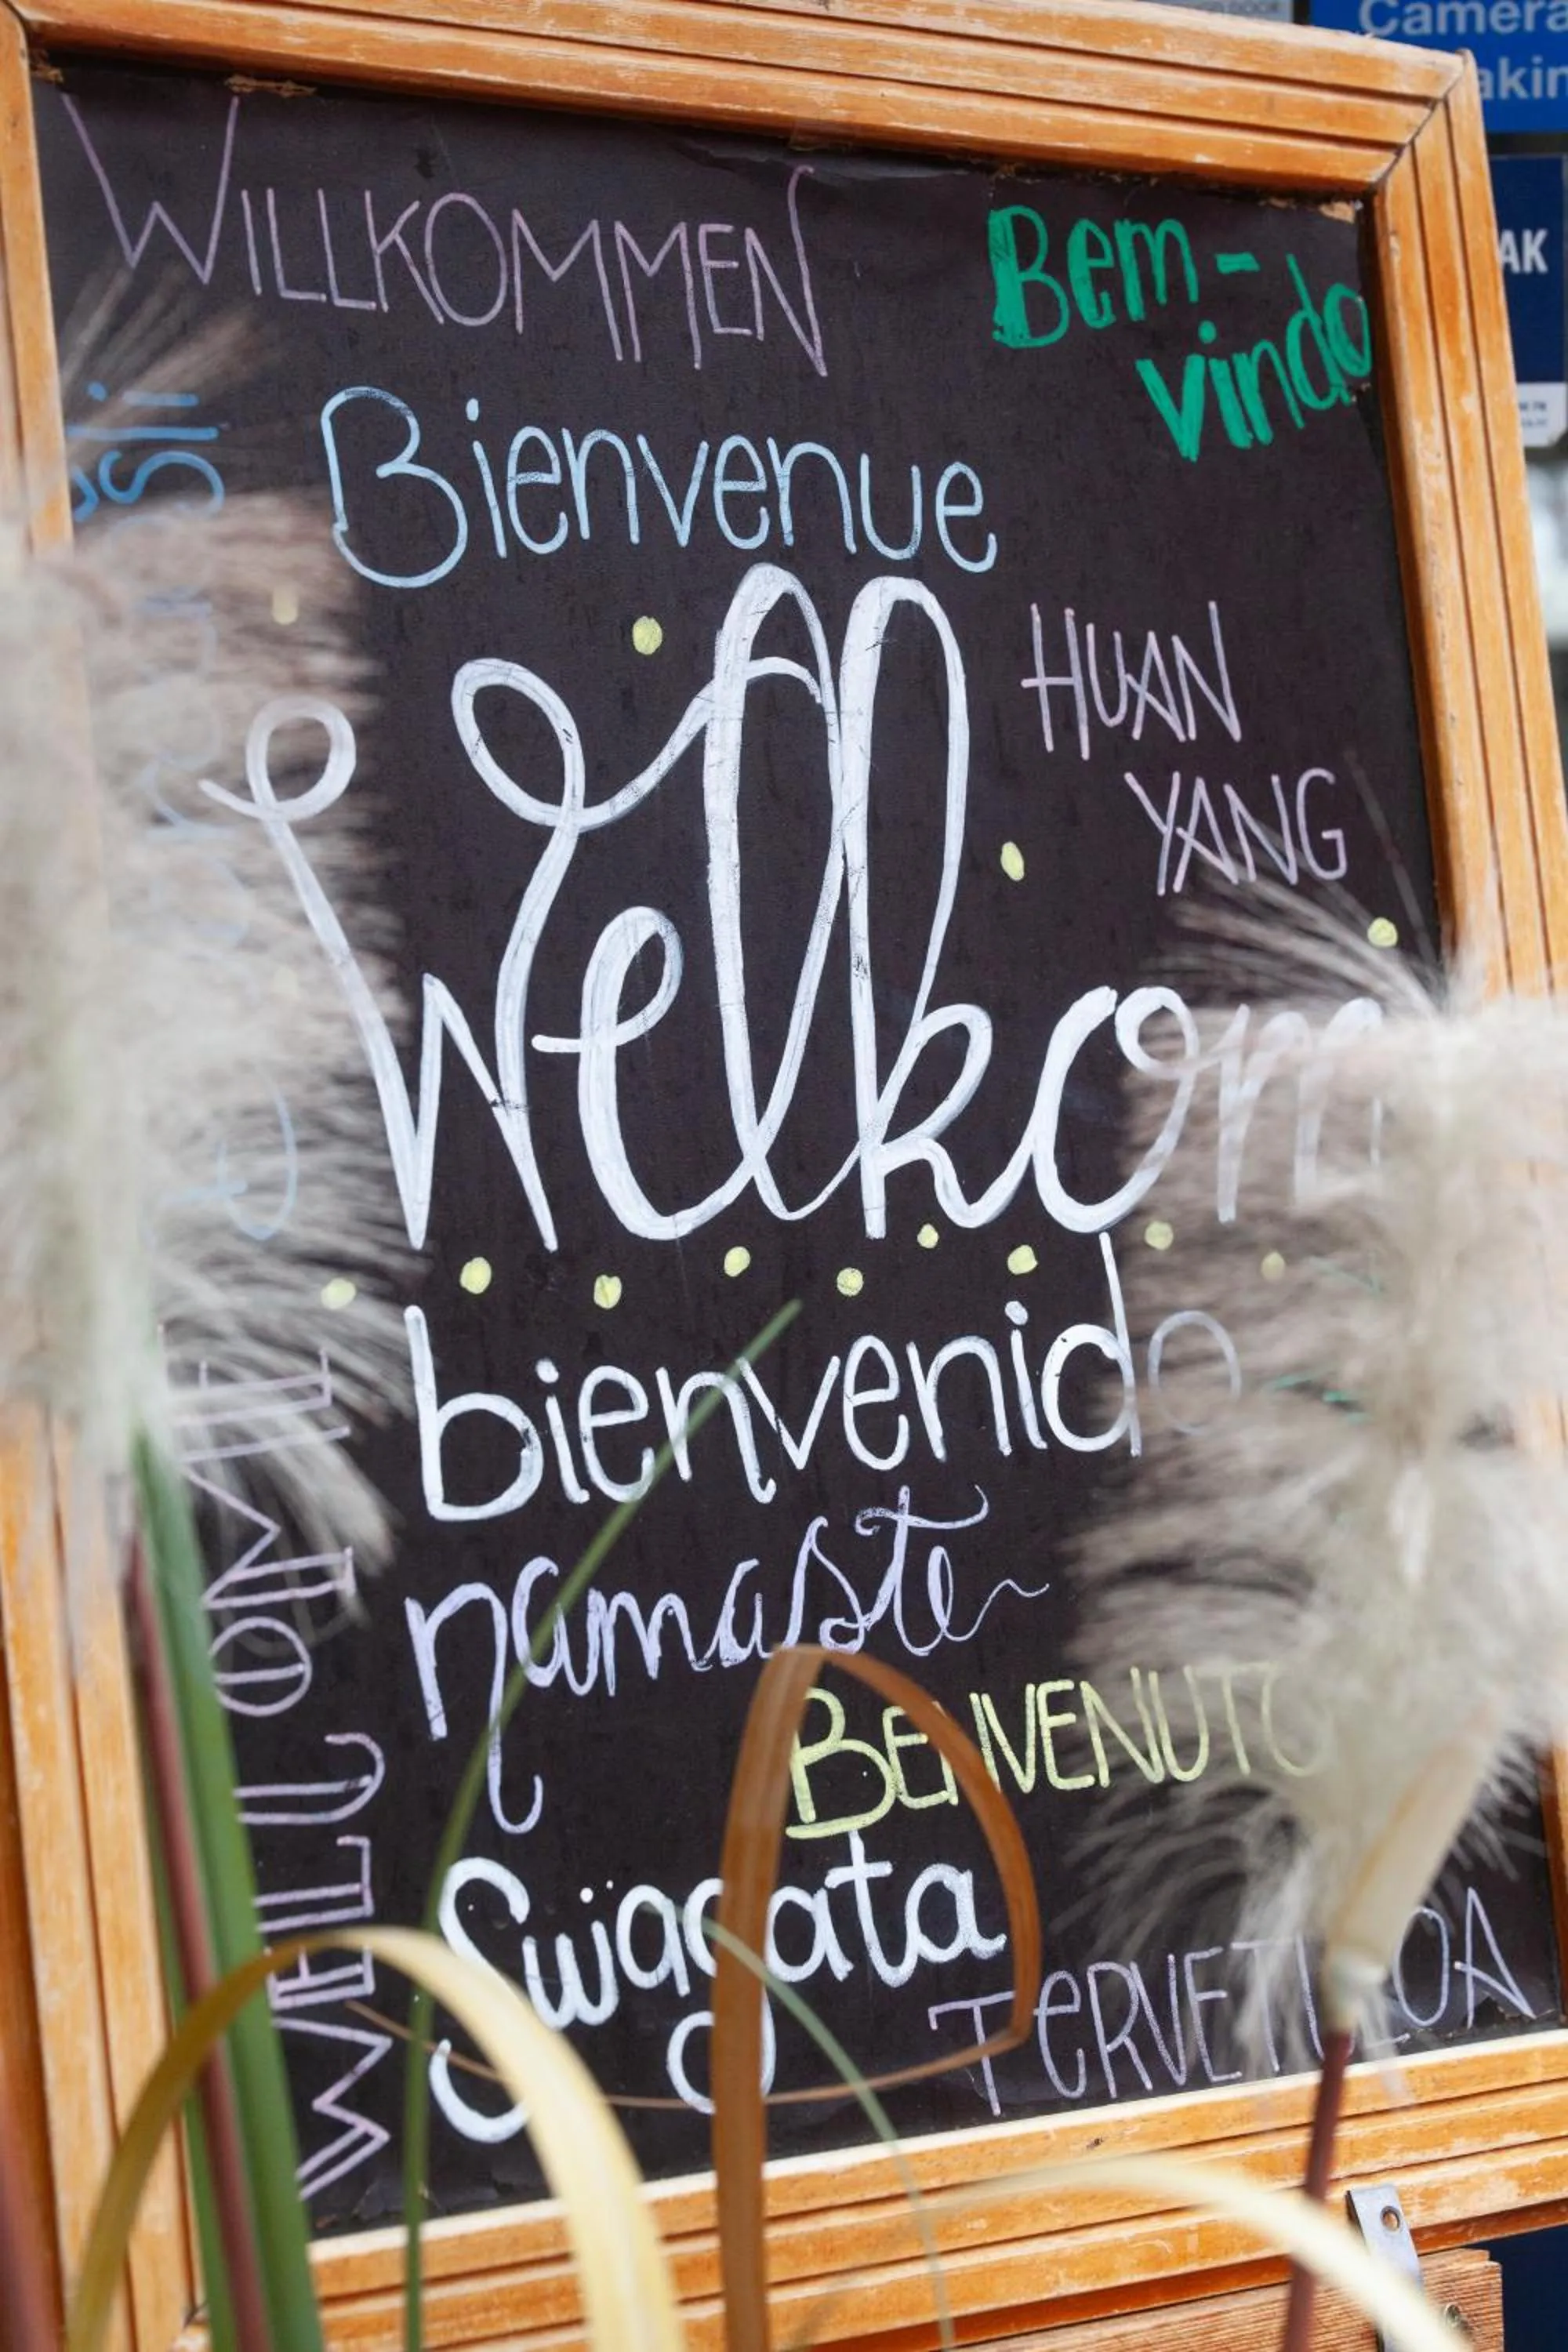 Camera
WILLKOMMEN
Bem-
vindo
AK
Bienvenue
HUAN
YANG
Welkom
bienvenido
namaste
BENVENUTO
Swagata
TERVETULOA
WELCOME